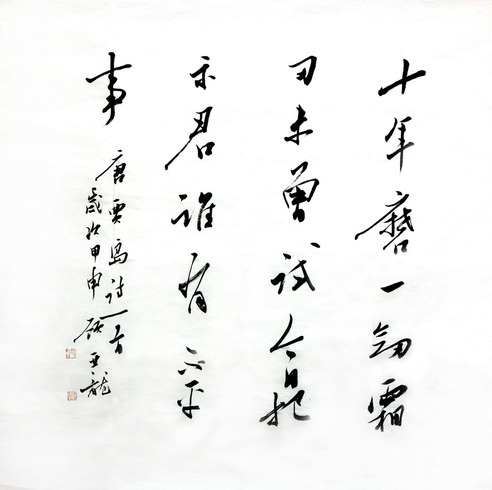 十年磨一劍霜
刃未曾試今日把
示君誰有不平
事
唐賈島詩一首
歲次甲申 顧亞龍